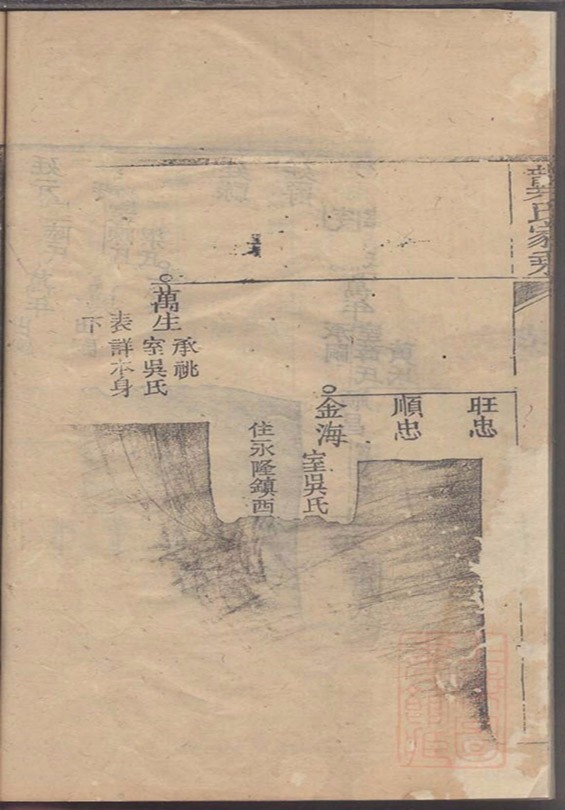 龔氏家乘
旺忠
順忠
金海
室吳氏
住永隆鎮西
萬生
承祧
室吳氏
表詳本身
下